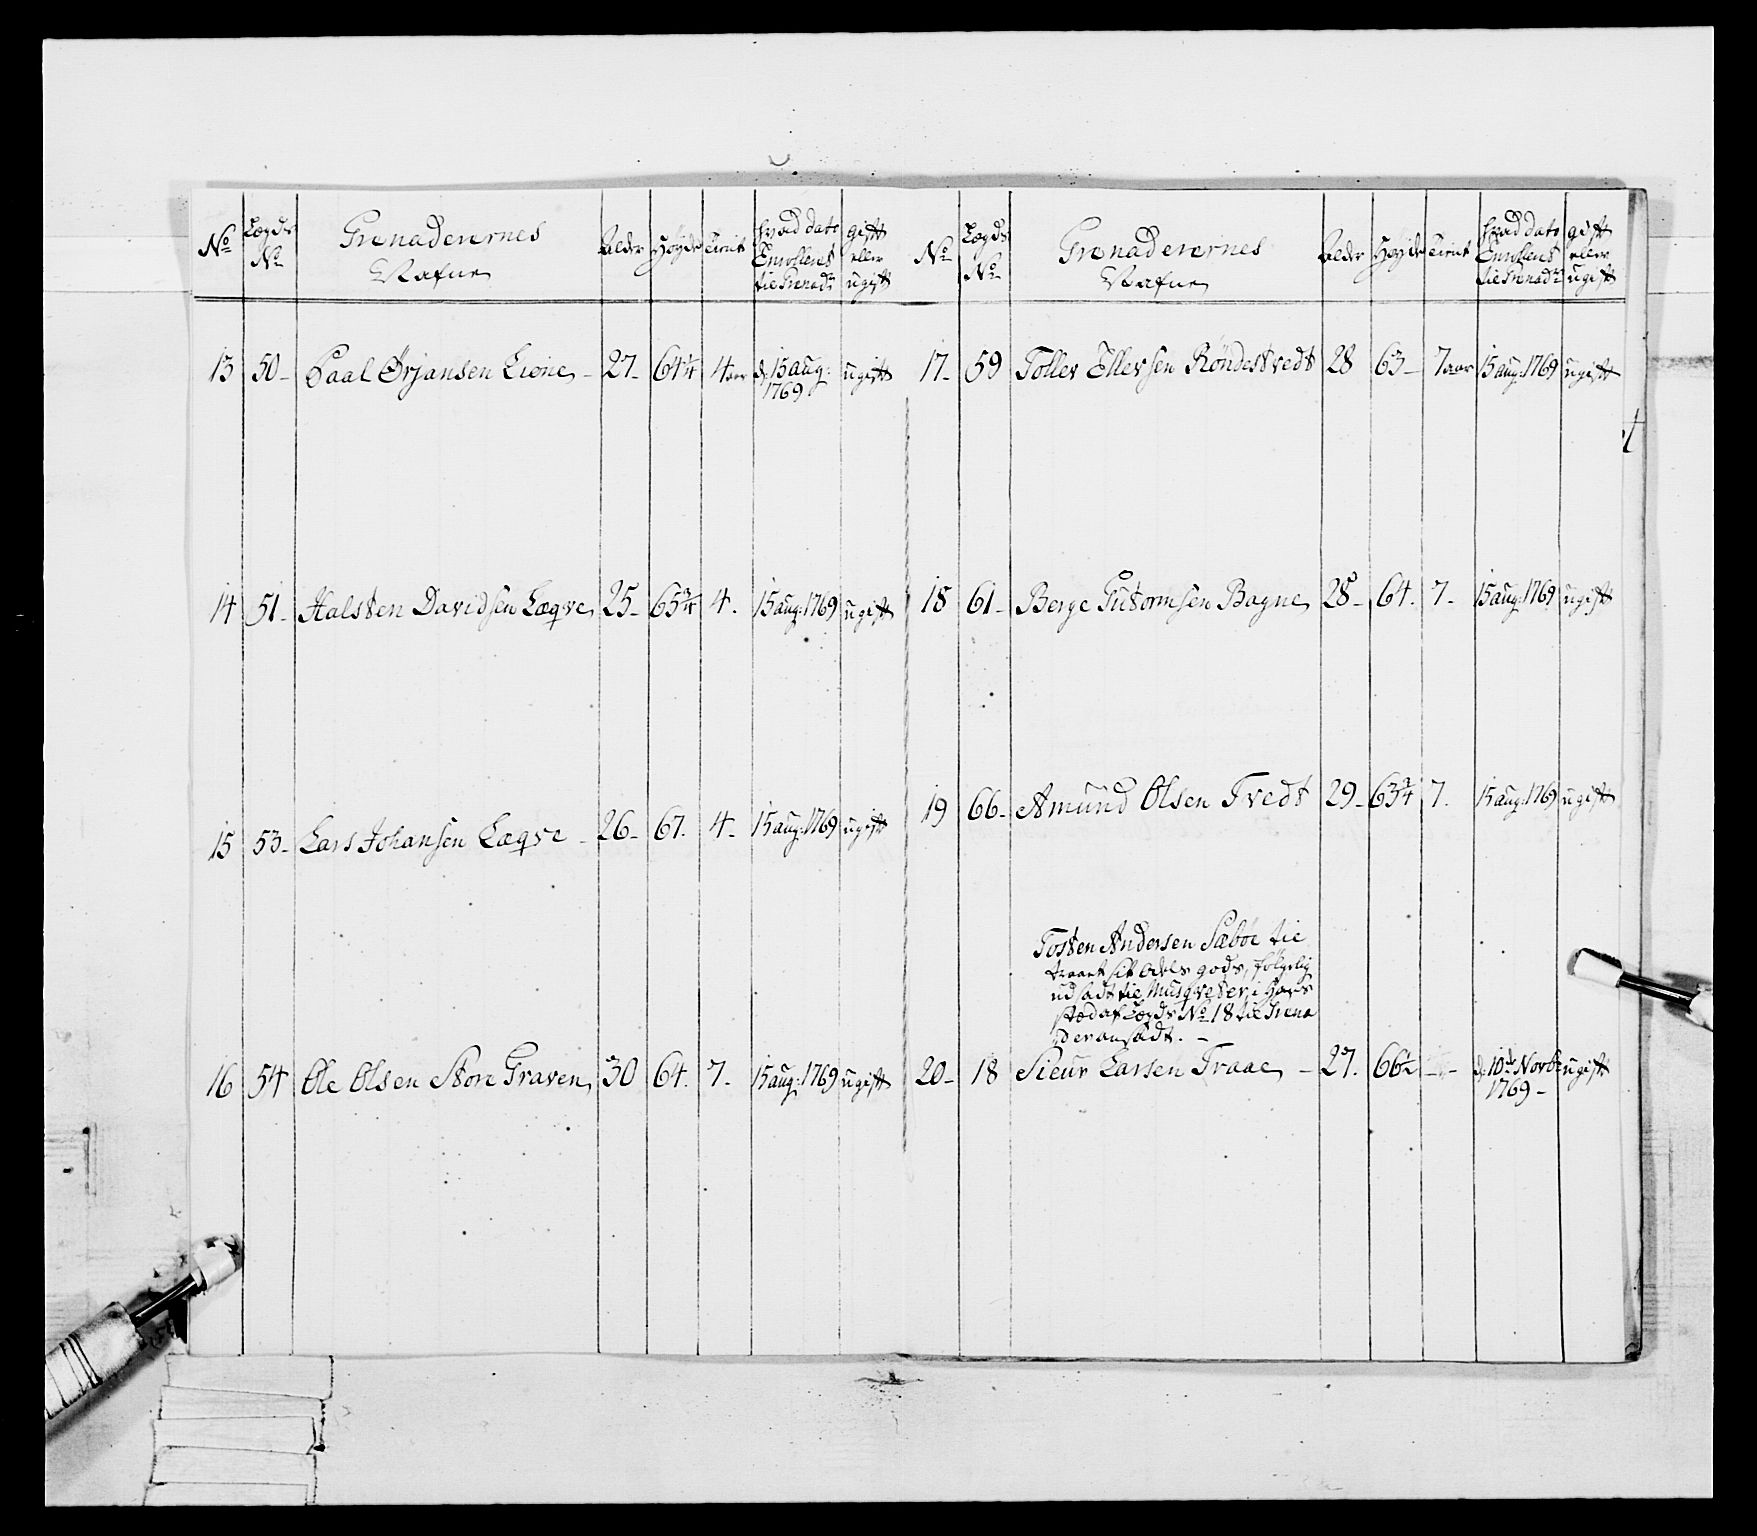 No Lægds No Grenaderernes Nafne Alder Høyde Tient hvad dato Enrollert til Grenadr gift eller ugift
13 50 - Paal Ørjansen Lione - 27 - 64 1/4 4 aar d. 15 aug: 1769 ugift
14 51 - Halsten Davidsen Lægve 25 - 65 3/4 4. 15 aug: 1769 ugift
15 53 - Lars Johansen Lægve - 26 - 67. 4 - 15 aug: 1769 ugift
16 54 Ole Olsen Store Graven 30 64. 7 - 15 aug: 1769 ugift
No Lægds No Grenaderernes Nafne Alder Høyde Tient hvad dato Enrollert til Grenadr gift eller ugift
17 - 59 Toller Ellevsen Röndestvedt 28 63 - 7 aar 15 aug: 1769 ugift
18 61 - Berge Gutormsen Bagne 28 - 64. 7 - 15 aug: 1769 ugift
19 66 - Amund Olsen Tvedt 29 - 63 3/4 7. 15 aug: 1769 ugift
Tosten Andersen Sæbøe til
traadt sit Odels gods, følgelig
udsadt til Musqveter, i Hans
stæd af Lægds No 18 til Grena
der ansadt. -
20 - 18 Sieur Larsen Traae - 27. 66 1/2 - - d. 10de Novbr 1769 - ugift